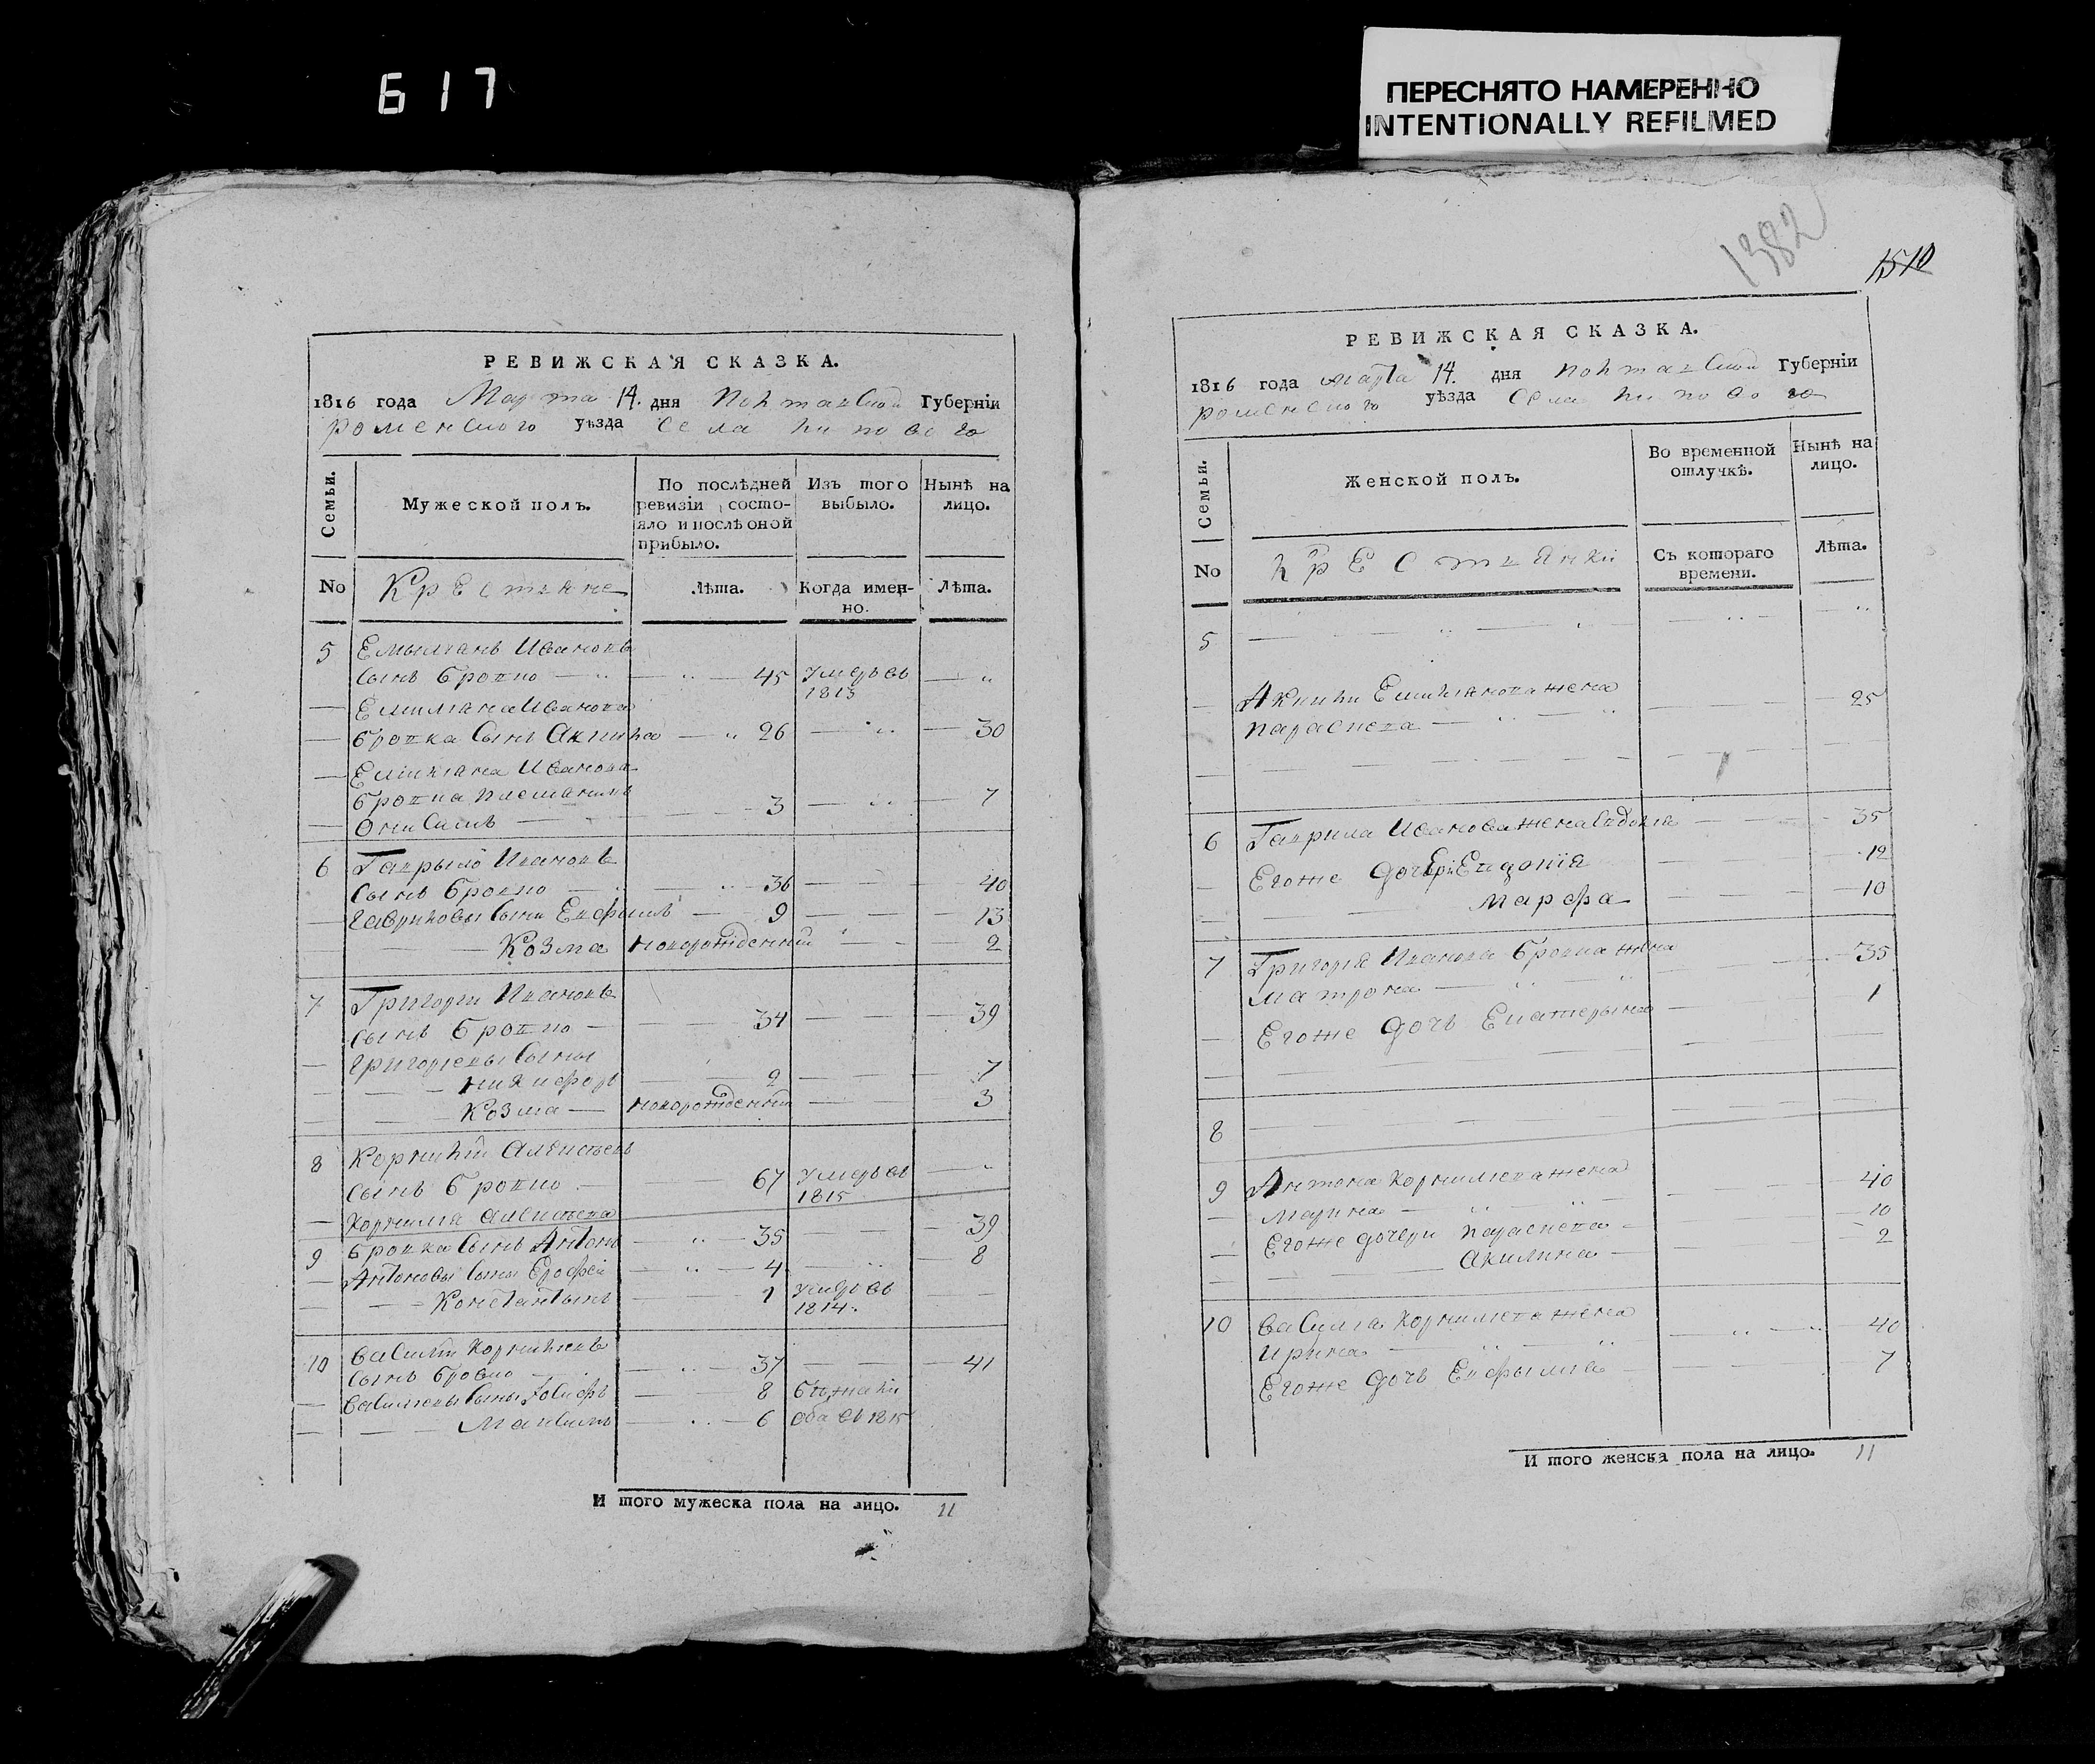 617
ПЕРЕСНЯТО НАМЕРЕННО
INTENTIONALLY REFILMED
РЕВИЖСКАЯ СКАЗКА.
1816 года Марта 14. дня Полтавской Губерніи
роменского уѣзда села Липового
Семьи.
Мужеской полъ.
По послѣдней ревизіи состо-
яло и послѣ оной
прибыло.
Изъ того
выбыло.
Нынѣ на
лицо.
No Крестяне Лѣта. Когда имен-
но. Лѣта.
5 Емылианъ Ивановъ
сынъ Бровко 45 умеръ въ
1813
Емилиана Иванова
бровка сынъ Акила 26 30
Емилиана Иванова
бровка племяникъ
Онисимъ 3 7
6 Гаврыло Ивановъ
сынъ бровко 36 40
гавриловы сыны Евфимъ 9 13
Козма новорожденний 2
7 Григори Ивановъ
сынъ бровко 34 39
григориевы сыны
никифоръ 2 7
Козма новорожденний 3
8 Корнилий Алексеевъ
сынъ бровко 67 умеръ въ
1815
корнилия алексеева
9 бровка сынъ Антонъ 35 39
Антоновы сыны Ерофей 4 8
Константынъ 1 умеръ въ
1814.
10 василий корнилиевъ
сынъ бровко 37 41
василиевы сыны Иосифъ 8 бежали
Максимъ 6 оба въ 1815
И того мужеска пола на лицо. 11
1382
1510
РЕВИЖСКАЯ СКАЗКА.
1816 года марта 14. дня полтавской Губерніи
роменского уѣзда села липового
Семьи.
Женской полъ.
Во временной
отлучкѣ.
Нынѣ на
лицо.
No крестянки Съ котораго
времени. Лѣта.
5
Акили Емилианова жена
параскева 25
6 Гаврила Иванова жена Евдокия 35
Егоже дочери Евдокия 12
Марфа 10
7 Григория Иванова бровка жена
матрона 35
Егоже дочь Екатерына 1
8
9 Антона корнилиева жена
марина 40
Егоже дочери параскева 10
Акилина 2
10 василия корнилиева жена
ирина 40
Егоже дочь Евфымия 7
И того женска пола на лицо. 11